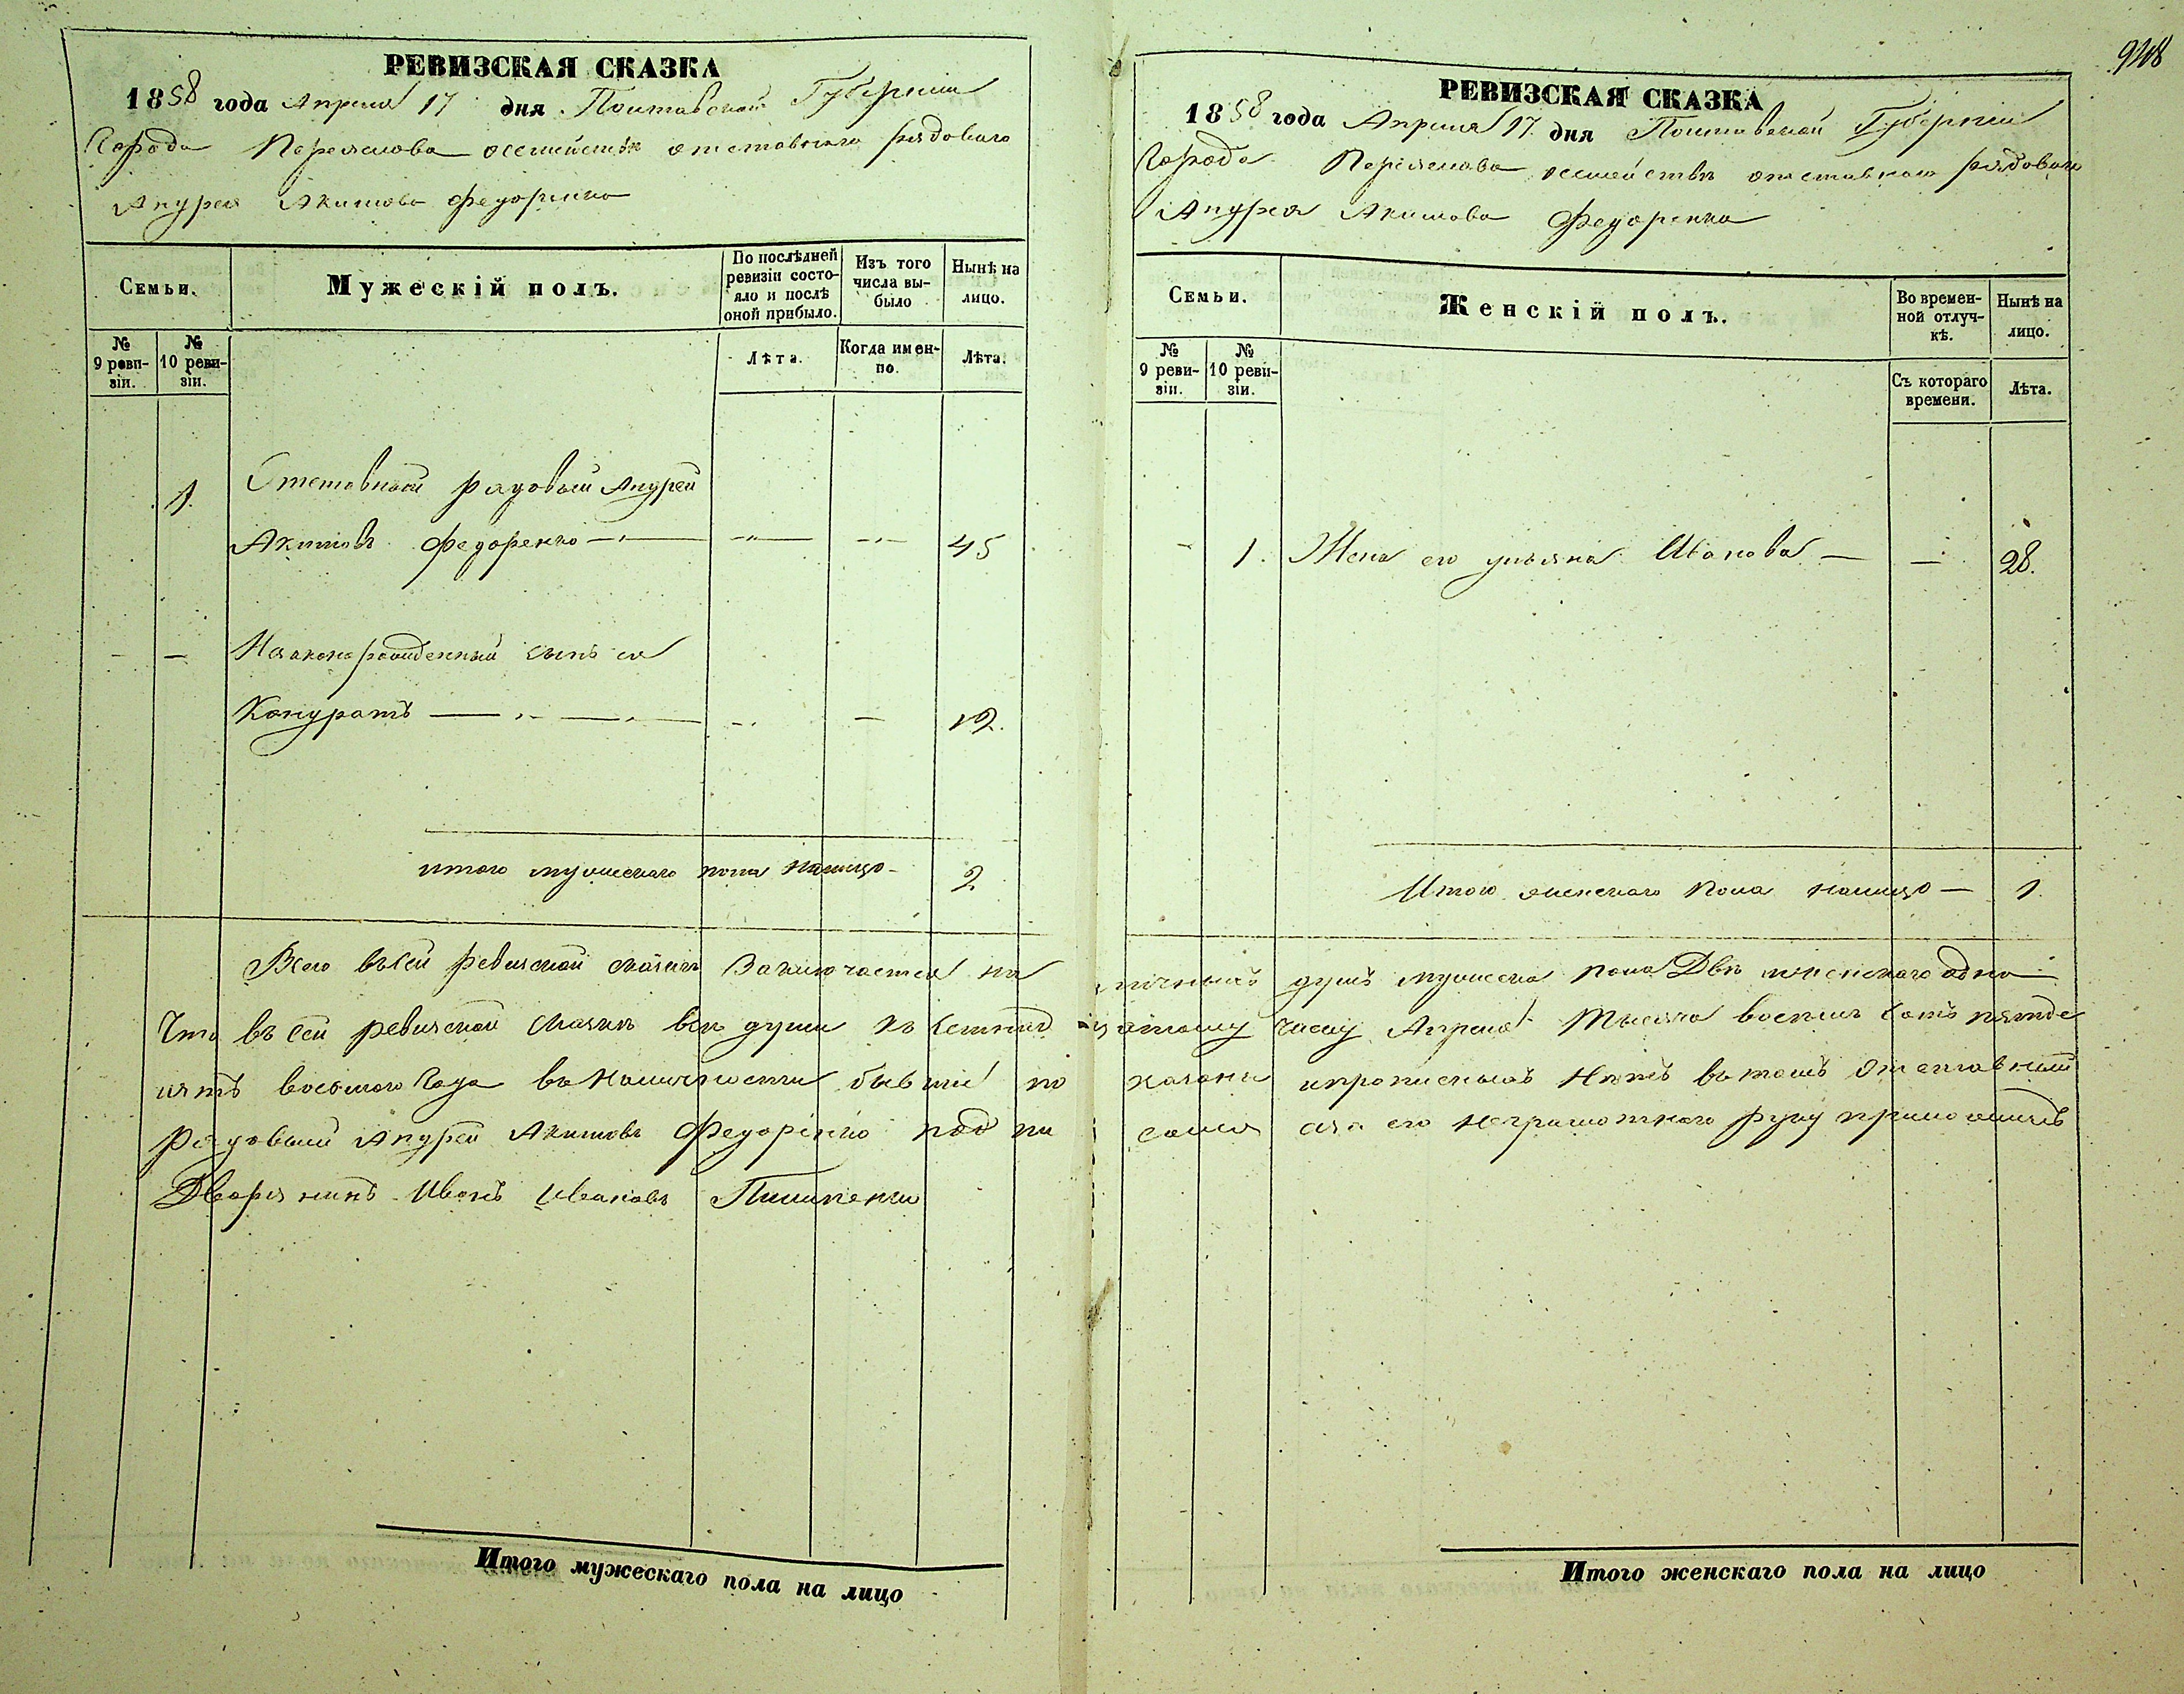 948
РЕВИЗСКАЯ СКАЗКА
1858 года Апреля 17 дня Полтавской Губернии
Города Переяслова о семействе отставнаго рядоваго
Андрея Акимова Федоренка
Семьи.
Мужескій полъ.
По послѣдней ревизіи состояло и послѣ оной прибыло.
Изъ того числа выбыло
Нынѣ на лицо.
№ 9 ревизіи.
№ 10 ревизіи.
Лѣта.
Когда именно.
Лѣта.
1. Отставной рядовый Андрей
Акимовъ Федоренко — — — 45
— — Незаконорожденный сынъ ея
Кондратъ — — — 12.
итого мужескаго пола налицо — 2
РЕВИЗСКАЯ СКАЗКА
1858 года Апреля 17. дня Полтавской Губерніи
Города Переяслава о семействѣ отставнаго рядоваго
Андрея Акимова Федоренка
Семьи.
Женскій полъ.
Во временной отлучкѣ.
Нынѣ на лицо.
№ 9 ревизіи.
№ 10 ревизіи.
Съ котораго времени.
Лѣта.
- 1. Жена его Ульяна Иванова — — 28.
Итого женскаго пола налицо — 1.
Всего въ сей ревизской сказкѣ Заключается наличныхъ душъ мужеска пола Двѣ женскаго одна
Что въ сей ревизской сказкѣ всѣ души къ семнадцатому числу Апреля Тысяча восемь сотъ пятьде
сятъ восьмого Года въ наличности бывшіе показаны и прописныхъ Нѣтъ въ томъ Отставный
Рядовый Андрей Акимовъ Федоренко подписался а за его неграмотного руку приложилъ
Дворянинъ Иванъ Ивановъ
Итого мужескаго пола на лицо
Итого женскаго пола на лицо